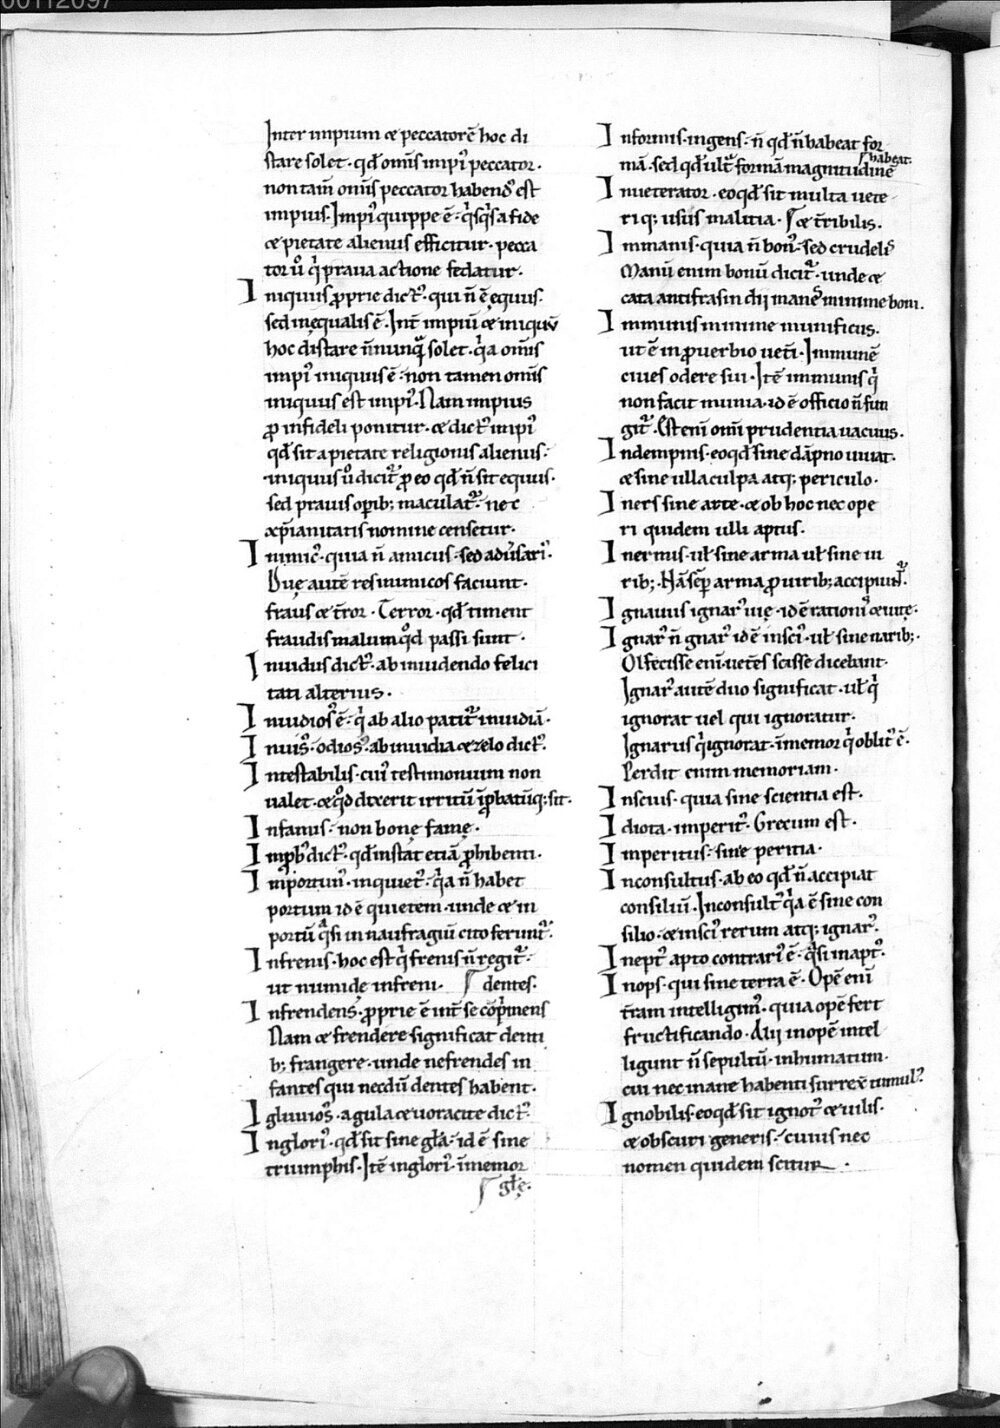 00112097
Inter impium & peccatorē hoc di
stare solet · qđ om̄is impi᷒ peccator ·
non tam̄ om̄is peccator habend᷒ est
impius. Impi᷒ quippe ē · q̇sq̇s a fide
& pietate alienus efficitur · pecca
tor ů q̇ praua actione fedatur.
Iniquus ꝓprie dict᷒ · qui n̄ ē equus·
sed inęqualis ē · Int̄ impiū & iniquū
hoc distare n̄nunq̄ solet · q̇a om̄is
impi᷒ iniquus ē · non tamen om̄is
iniquus est impi᷒ · Nam impius
ꝓ infideli ponitur · & dict᷒ impi᷒
qđ sit a pietate religionis alienus·
iniquus ů dicit᷒ ꝓ eo qđ n̄ sit equus·
sed prauis oꝑib; maculat᷒ · nec
xp̄ianitatis nomine censetur·
Inimic᷒ · quia n̄ amicus · sed adůsari᷒·
Duę autē res inimicos faciunt·
fraus & t̄ror · Terror · qđ timent
fraudis malum q̊d passi sunt ·
Inuidus dict᷒ · ab inuidendo felici
tati alterius ·
Inuidios᷒ ē · q̇ ab alio patit᷒ inuidiā·
Inuis᷒ · odios᷒ · ab inuidia & zelo dict᷒·
Intestabilis · cui᷒ testimonium non
ualet · & q̊d dixerit irritū īprobatūq; sit·
Infamis · non bonę famę ·
Improb᷒ dict᷒ · qđ instat etiā ꝓhibenti·
Inportun᷒ · inquiet᷒ · q̇a n̄ habet
portum id ē quietem · unde & in
portū q̇si in naufragiū cito ferunt᷒·
Infrenis · hoc est q̇ frenis n̄ regit᷒ ·
ut numidę infreni · dentes·
Infrendens · ꝓprie ē int̄ se cōp̄mens
Nam & frendere significat denti
b; frangere · unde nefrendes in
fantes qui necdū dentes habent·
Igluuios᷒ · a gula & uoracite dict᷒·
Inglori᷒ · qđ sit sine gła · id ē sine
triumphis · Itē inglori᷒ · īmemor
głę·
Informis · ingens · n̄ qđ n̄ habeat for
mā · sed qđ ult᷒ formā magnitudinē
habeat·
Inueterator · eo qđ sit multa uete
riq; usus malitia · & t̄ribilis ·
Immanis · quia n̄ bon᷒ · sed crudelis
Manū enim bonū dicit᷒ · unde &
cata antifrasin dii manes minime boni ·
Immunis minime munificus·
ut ē in ꝓuerbio uet̄i · Immunē
ciues odere sui · Itē immunis q̇
non facit munia · id ē officio n̄ fun
git᷒ · Est eni᷒ omi᷒ prudentia uacuus·
Indempnis · eo qđ sine dāpno uiuat·
& sine ulla culpa atq; periculo·
Iners sine arte · & ob hoc nec ope
ri quidem ulli aptus·
Inermis · uł sine arma uł sine ui
rib; · Nā sēp arma ꝓ uirib; accipiunt᷒·
Ignauus ignar᷒ uię · id ē rationi᷒ & uitę·
Ignar᷒ n̄ gnar᷒ id ē insci᷒ · uł sine narib;·
Olfecisse eni᷒ uet̄es scisse dicebant·
Ignar᷒ autē duo significat · uł q̇
ignorat uel qui ignoratur·
Ignarus q̇ ignorat · īmemor q̇ oblit᷒ ē ·
Perdit enim memoriam ·
Inscius · quia sine scientia est ·
Idiota · imperit᷒ · Grecum est ·
Inperitus · sine peritia ·
Inconsultus · ab eo qđ n̄ accipiat
consiliū · Inconsult᷒ q̇a ē sine con
silio · & insci᷒ rerum atq; ignar᷒·
Inept᷒ apto contrari᷒ ē · q̇si inapt᷒·
Inops · qui sine terra ē · Opē eni᷒
t̄ram intelligim᷒ · quia opē fert
fructificando · Alij inopē intel
ligunt n̄ sepultū · inhumatum ·
cui nec inane habenti surrexē tumul᷒
Ignobilis · eo qđ sit ignot᷒ & uilis ·
& obscuri generis · cuius nec
nomen quidem scitur ·